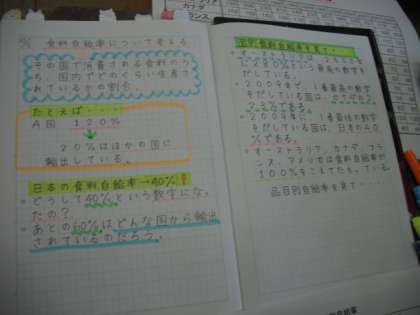 食料自給率について考える
その国で消費される食料のう
ち、国内でどのくらい生産さ
れているかの割合。
たとえば・・・・・
A国 120%
20%はほかの国に
輸出している。
日本の食料自給率→40%
・どうして40%という数字にな
たの？
・あとの60%はどんな国から輸出
されているのだろう。
食料自給率を見て・・
だしている。
・2007年で、1番最高の数字
をだしている国は、
・2007年に、1番最低の数字
をだしている国は、日本の40
%である。
・オーストラリア、カナダ、フラ
ンス、アメリカは食料自給率が
100%をこえている。
品目別自給率を見て・・・・